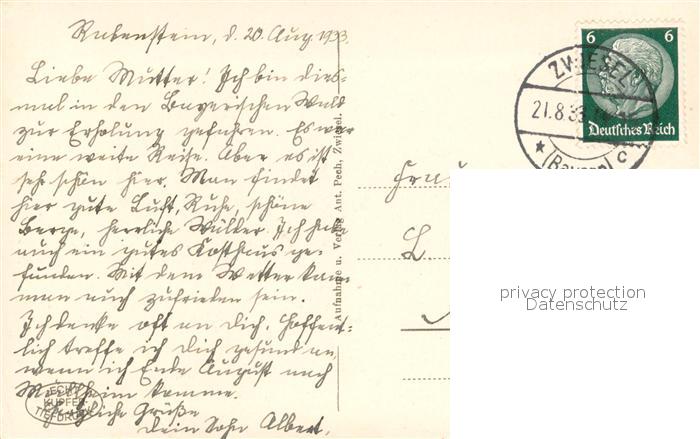 Rabenstein, d. 20. Aug 1933.
Liebe Mutter! Ich bin dies-
mal in den Bayerschen Wald
zur Erholung gefahren. Es war
eine weite Reise. Aber es ist
sehr schön hier. Man findet
hier gute Luft, Ruhe, schöne
Berge, herrliche Wälder. Ich hab
auch ein gutes Kosthaus ge-
funden. Mit dem Wetter kann
man auch zufrieden sein.
Ich denke oft an dich. Hoffent-
lich treffe ich dich gesund an,
wenn ich Ende August nach
komme.
Herzliche Grüße
Dein Sohn Albert.
ECHT
KUPFER-
TIEFDRUCK
Aufnahme u. Verlag Ant. Pech, Zwiesel.
6 6
Deutsches Reich
ZWIESEL
21.8.33
(Bayern) c
Frau
L.
privacy protection
Datenschutz